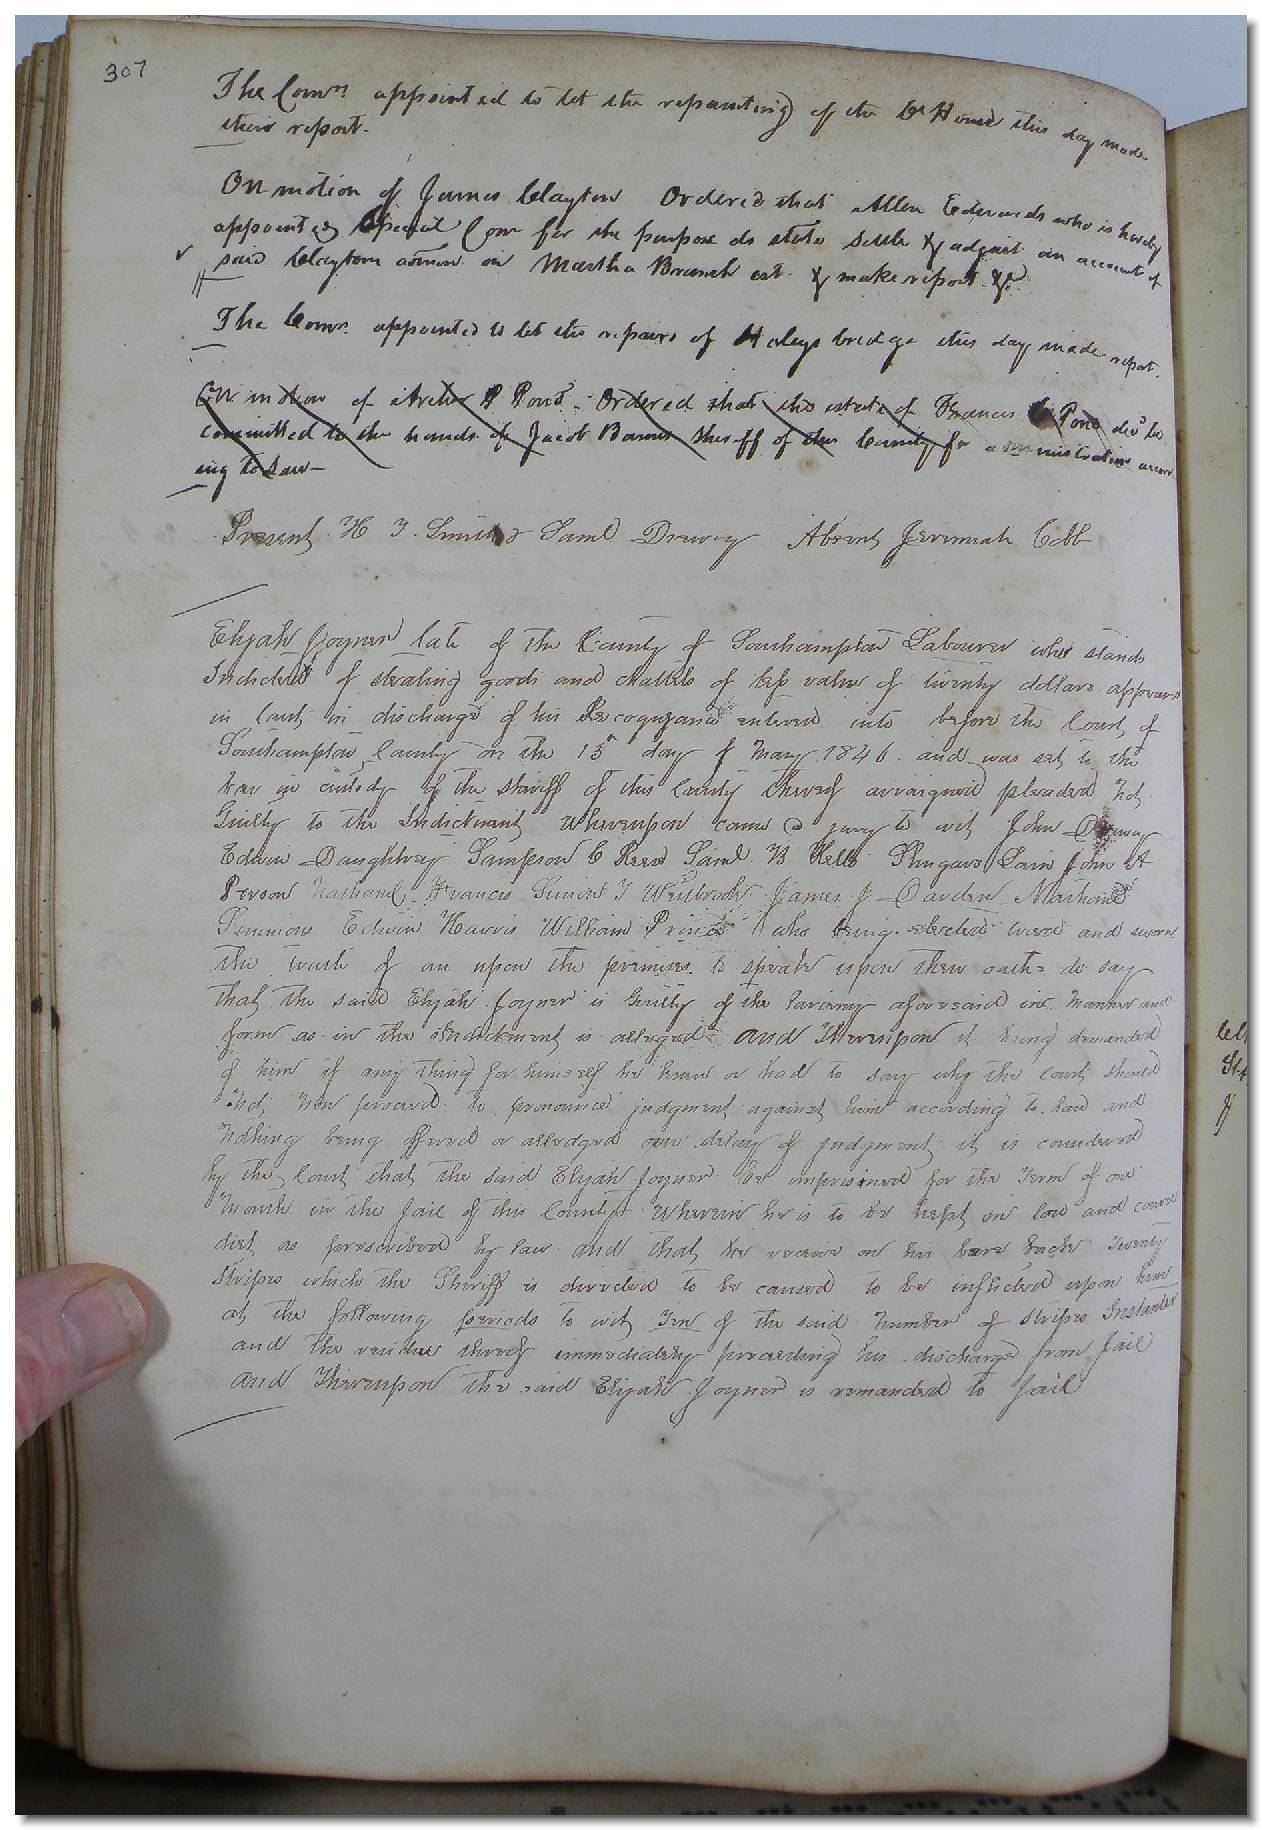 307
The Comrs. appointed to let the repainting of the Ct House this day made
their report.
On motion of James Clayton Ordered that Allen Edwards who is hereby
appointed Special Com for the purpose do state settle & adjust an account of
said Clayton admor. on Martha Branch est. & make report &c
The Comrs. appointed to let the repairs of Haleys bridge this day made report.
On motion of P Pond - Ordered that the estate of Francis Pond decd be
committed to the hands of Jacob Barnes Sheriff of this County for administration accord
ing to Law -
Present H T. Smith & Saml Drewry Absent Jeremiah Cobb
Elijah Joyner late of the County of Southampton Labourer who stands
Indicted of stealing goods and chattels of less value of twenty dollars appeared
in Court in discharge of his Recognizance entered into before the Court of
Southampton County on the 13 day of May 1846 and was set to the
bar in custody of the sheriff of this County thereof arraigned pleaded not
Guilty to the Indictment Whereupon came a jury to wit John Drewry
Edwin Daughtrey Sampson C Reese Saml B Kello Lain John A
Person Nathaniel Francis Simon T Westbrook James J Darden
Simmons Edwin Harris William Prince who being elected tried and sworn
the truth of an upon the premises to speak upon their oaths do say
that the said Elijah Joyner is Guilty of the larceny aforesaid in manner and
form as in the Indictment is alleged and Thereupon it being demanded
of him if any thing for himself he knew or had to say why the court should
Not now proceed to pronounce judgment against him according to law and
Nothing being offered or alledged in delay of judgment it is considered
by the Court that the said Elijah Joyner be imprisoned for the Term of one
Month in the Jail of this County Wherein he is to be kept on low and coarse
diet as prescribed by law and that he receive on his bare back Twenty
stripes which the Sheriff is directed to be caused to be inflicted upon him
at the following periods to wit Ten of the said number of stripes Instanter
and the residue thereof immediately preceeding his discharge from Jail
and Thereupon the said Elijah Joyner is remanded to Jail